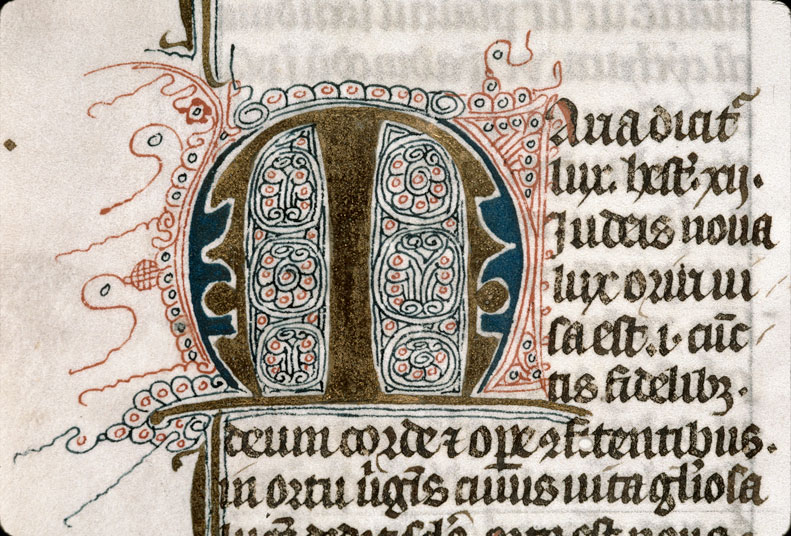 MAria dicit᷑
lux. hest᷑. xij.
Judeis noua
lux oriri ui
sa est. i. cũc
tis fidelibꝫ.
deum corde ⁊ oꝑe ꝯfitentibus.
in ortu ũgĩs cuius uita gl̃iosa